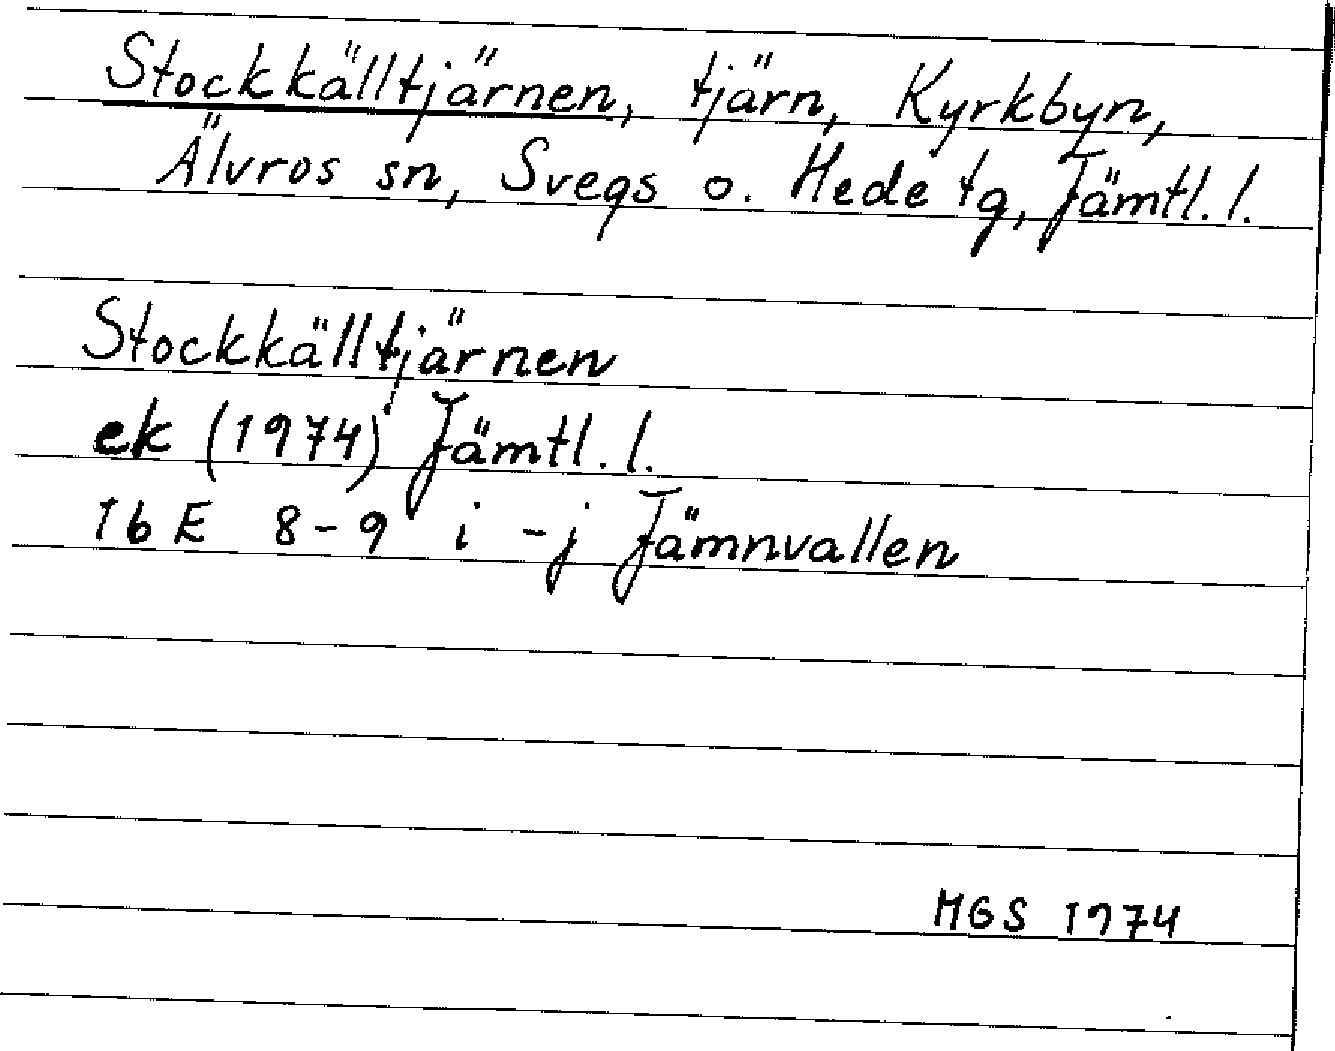 Stockkälltjärnen, tjärn, Kyrkbyn,
Älvros sn, Svegs o. Hede tg, Jämtl. l.
Stockkälltjärnen
ek (1974) Jämtl. l.
16 E 8-9 i - j Jämnvallen
MGS 1974